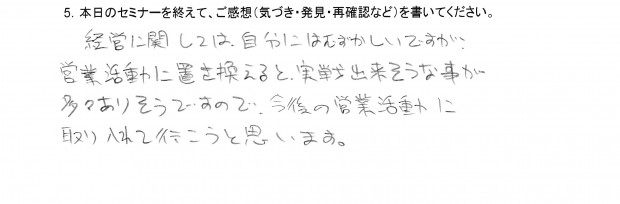 5. 本日のセミナーを終えて、ご感想（気づき・発見・再確認など）を書いてください。
経営に関しては、自分にはむずかしいですが、
営業活動に置き換えると、実戦出来そうな事が
多々ありそうですので、今後の営業活動に
取り入れて行こうと思います。